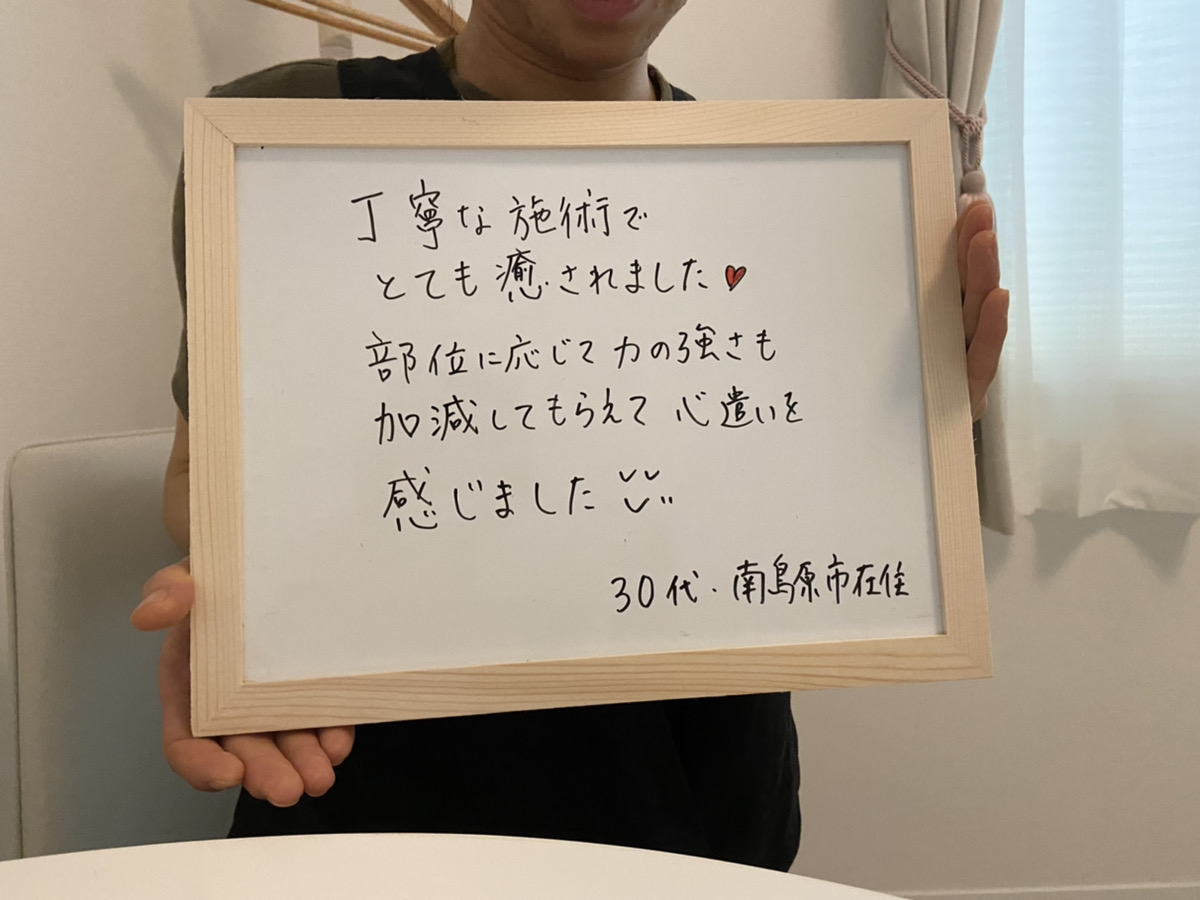 丁寧な施術で
とても癒されました♥
部位に応じて力の強さも
加減してもらえて心遣いを
感じました
30代・南島原市在住